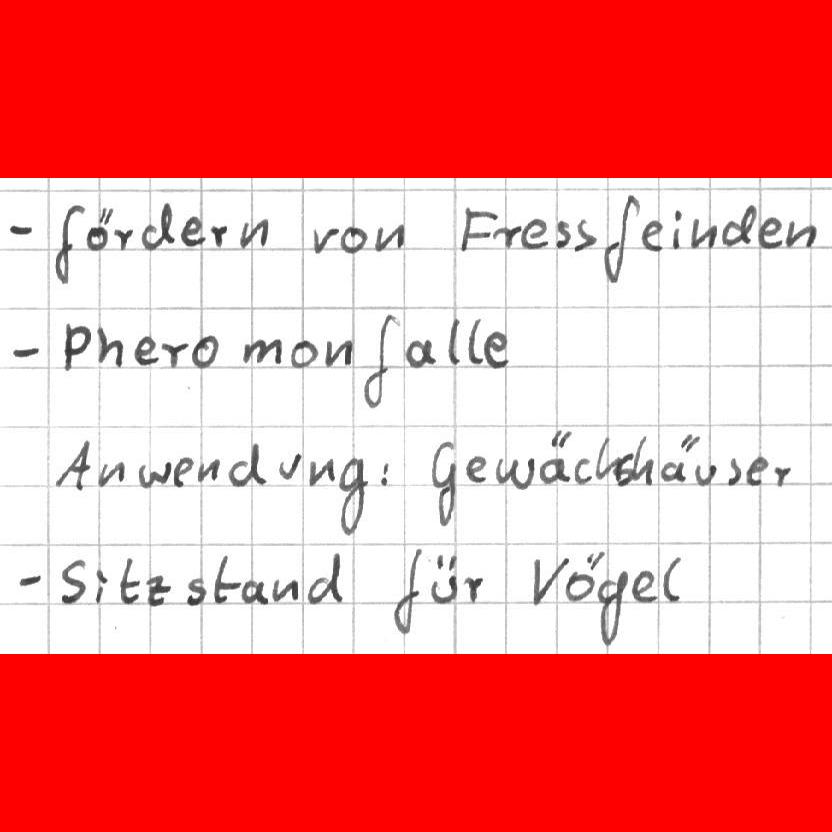 - fördern von Fressfeinden
- Pheromonfalle
Anwendung: Gewächshäuser
- Sitzstand für Vögel